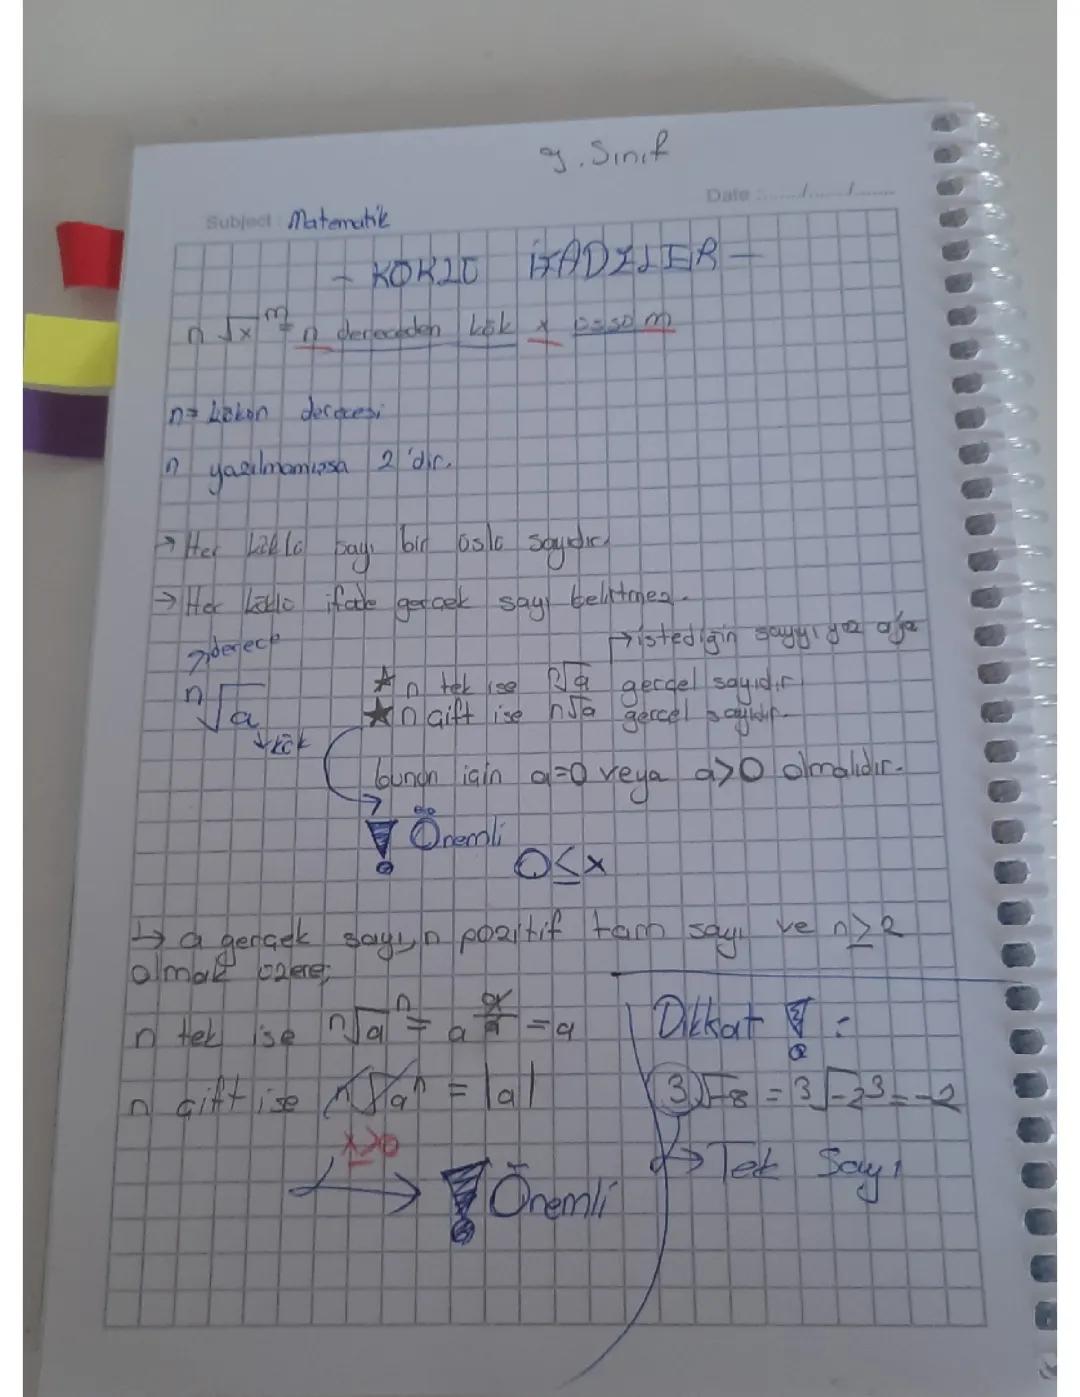 9. Sınıf
Date :....../....../......
Subject : Matematik
- KÖKLÜ İFADELER -
n√x^m = n dereceden kök x üssü m
n = kökün derecesi
n yazılmamışsa 2'dir.
→ Her köklü sayı bir üslü sayıdır.
→ Her köklü ifade gerçek sayı belirtmez.
→derece
→istediğin sayıyı yaz a'ya
ⁿ√a
↓kök
★ n tek ise ⁿ√a gerçel sayıdır
★ n çift ise n√a gerçel sayıdır.
bunun için a=0 veya a>0 olmalıdır.
! Önemli
0≤x
↳ a gerçek sayı, n pozitif tam sayı ve n≥2
olmak üzere;
n tek ise ⁿ√aⁿ = a^(n/n) = a
n çift ise ⁿ√aⁿ = |a|
x≥0
→ ! Önemli
Dikkat ! :
3√-8 = 3√-2³ = -2
→ Tek Sayı